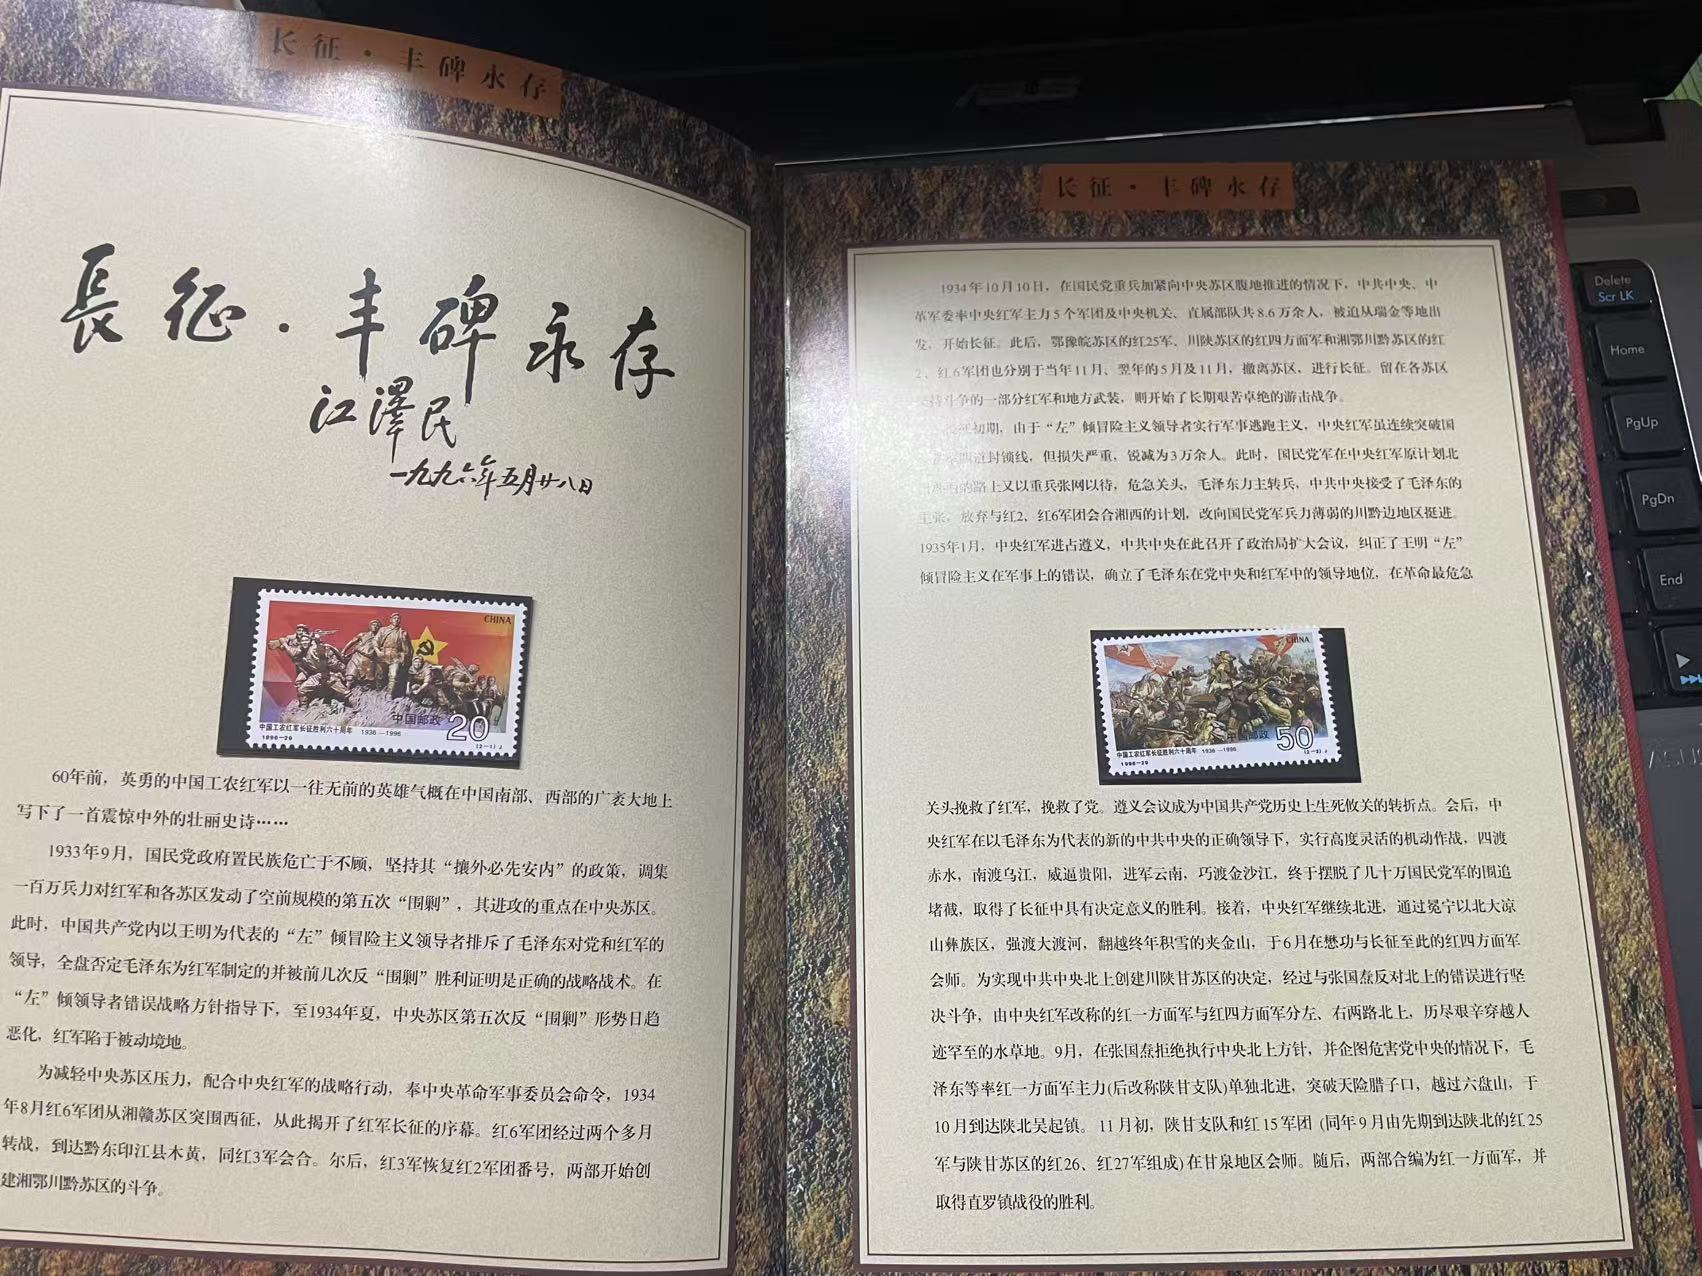 长征·丰碑永存
長征·丰碑永存
江澤民
一九九六年五月廿八日
CHINA
中国邮政 20
中国工农红军长征胜利六十周年 1936—1996
1996-29 (2-1)J
60年前，英勇的中国工农红军以一往无前的英雄气概在中国南部、西部的广袤大地上
写下了一首震惊中外的壮丽史诗……
1933年9月，国民党政府置民族危亡于不顾，坚持其“攘外必先安内”的政策，调集
一百万兵力对红军和各苏区发动了空前规模的第五次“围剿”，其进攻的重点在中央苏区。
此时，中国共产党内以王明为代表的“左”倾冒险主义领导者排斥了毛泽东对党和红军的
领导，全盘否定毛泽东为红军制定的并被前几次反“围剿”胜利证明是正确的战略战术。在
“左”倾领导者错误战略方针指导下，至1934年夏，中央苏区第五次反“围剿”形势日趋
恶化，红军陷于被动境地。
为减轻中央苏区压力，配合中央红军的战略行动，奉中央革命军事委员会命令，1934
年8月红6军团从湘赣苏区突围西征，从此揭开了红军长征的序幕。红6军团经过两个多月
转战，到达黔东印江县木黄，同红3军会合。尔后，红3军恢复红2军团番号，两部开始创
建湘鄂川黔苏区的斗争。
长征·丰碑永存
1934年10月10日，在国民党重兵加紧向中央苏区腹地推进的情况下，中共中央、中
革军委率中央红军主力5个军团及中央机关、直属部队共8.6万余人，被迫从瑞金等地出
发，开始长征。此后，鄂豫皖苏区的红25军、川陕苏区的红四方面军和湘鄂川黔苏区的红
2、红6军团也分别于当年11月、翌年的5月及11月，撤离苏区，进行长征。留在各苏区
坚持斗争的一部分红军和地方武装，则开始了长期艰苦卓绝的游击战争。
长征初期，由于“左”倾冒险主义领导者实行军事逃跑主义，中央红军虽连续突破国
四道封锁线，但损失严重，锐减为3万余人。此时，国民党军在中央红军原计划北
的路上又以重兵张网以待，危急关头，毛泽东力主转兵，中共中央接受了毛泽东的
主张，放弃与红2、红6军团会合湘西的计划，改向国民党军兵力薄弱的川黔边地区挺进。
1935年1月，中央红军进占遵义，中共中央在此召开了政治局扩大会议，纠正了王明“左”
倾冒险主义在军事上的错误，确立了毛泽东在党中央和红军中的领导地位，在革命最危急
CHINA
中国邮政 50
中国工农红军长征胜利六十周年 1936—1996
1996-29 (2-2)J
关头挽救了红军，挽救了党。遵义会议成为中国共产党历史上生死攸关的转折点。会后，中
央红军在以毛泽东为代表的新的中共中央的正确领导下，实行高度灵活的机动作战，四渡
赤水，南渡乌江，威逼贵阳，进军云南，巧渡金沙江，终于摆脱了几十万国民党军的围追
堵截，取得了长征中具有决定意义的胜利。接着，中央红军继续北进，通过冕宁以北大凉
山彝族区，强渡大渡河，翻越终年积雪的夹金山，于6月在懋功与长征至此的红四方面军
会师。为实现中共中央北上创建川陕甘苏区的决定，经过与张国焘反对北上的错误进行坚
决斗争，由中央红军改称的红一方面军与红四方面军分左、右两路北上，历尽艰辛穿越人
迹罕至的水草地。9月，在张国焘拒绝执行中央北上方针，并企图危害党中央的情况下，毛
泽东等率红一方面军主力(后改称陕甘支队)单独北进，突破天险腊子口，越过六盘山，于
10月到达陕北吴起镇。11月初，陕甘支队和红15军团(同年9月由先期到达陕北的红25
军与陕甘苏区的红26、红27军组成)在甘泉地区会师。随后，两部合编为红一方面军，并
取得直罗镇战役的胜利。
Delete
Scr LK
Home
PgUp
PgDn
End
ASUS